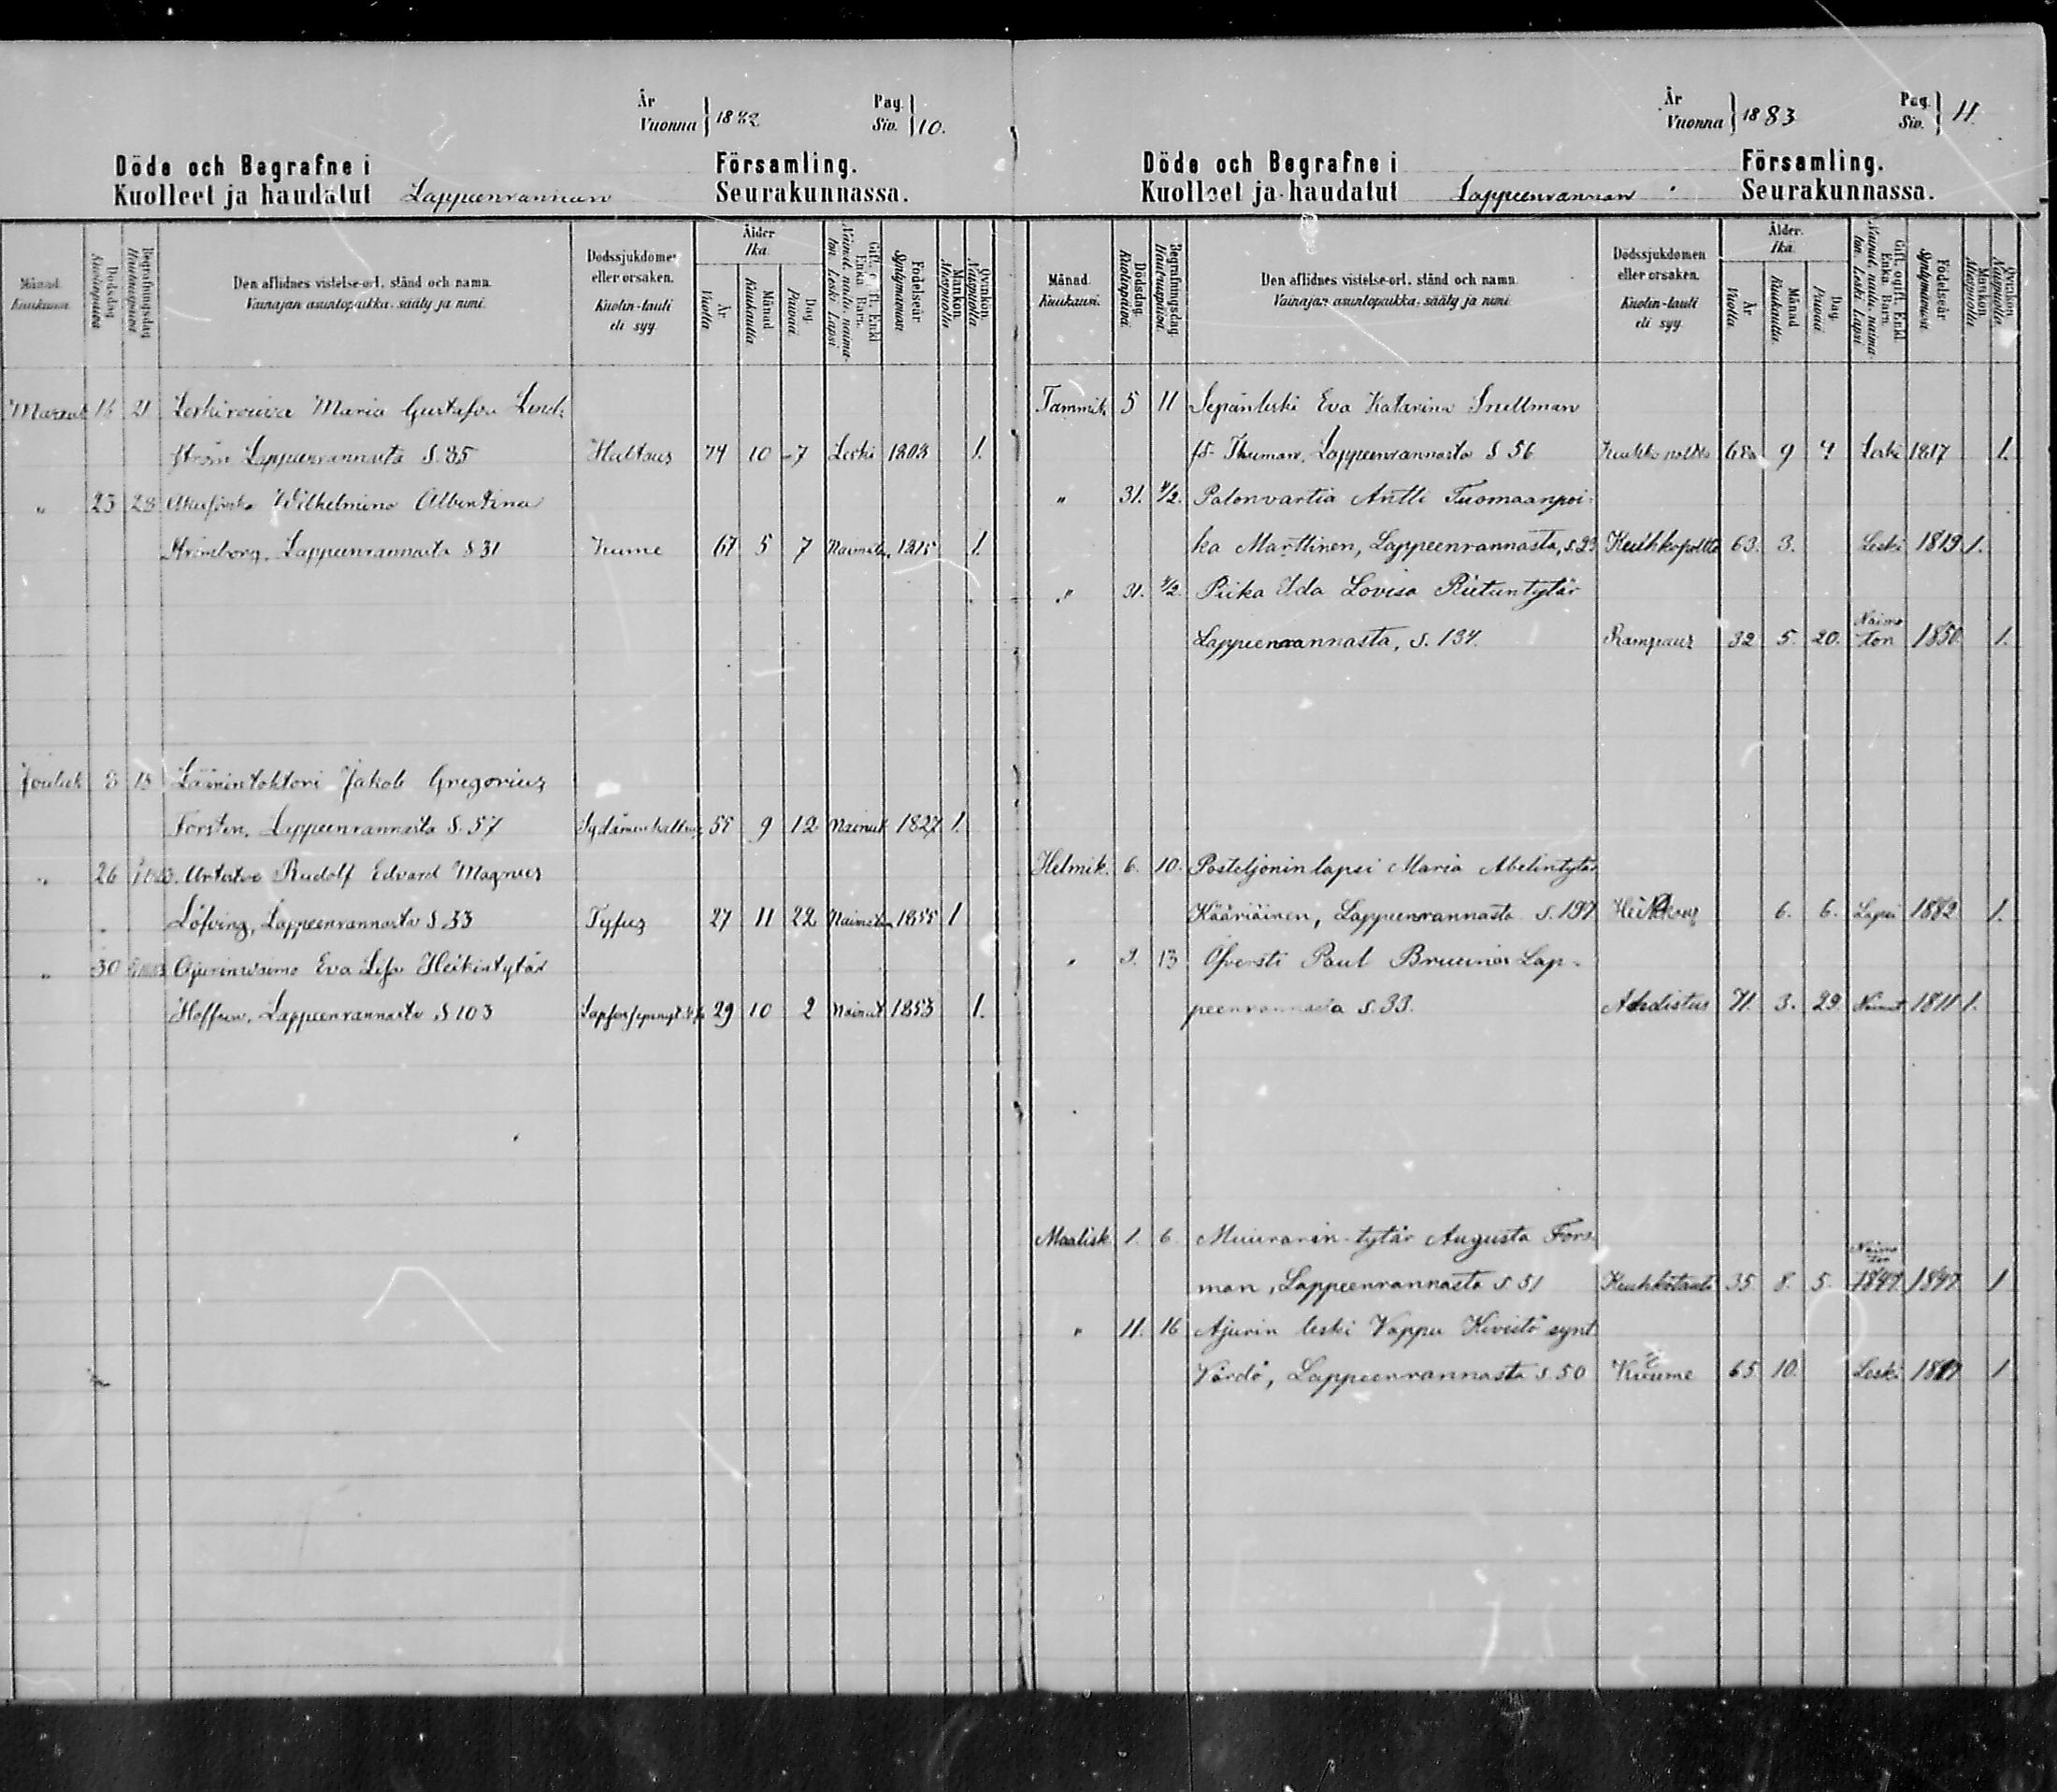 År Vuonna } 1882 Pag. Siv. } 10.
Döde och Begrafne i Församling.
Kuolleet ja haudatut Lappeenrannan Seurakunnassa.
Månad. Kuukausi.
Dödsdag. Kuolinpäivä.
Begrafningsdag. Hautauspäivä.
Den aflidnes vistelse-ort, stånd och namn.
Vainajan asuntopaikka, sääty ja nimi.
Dödssjukdomen eller orsaken.
Kuolin-tauti eli syy.
Ålder. Ikä.
År Vuotta
Månad Kuukautta
Dag. Päivää
Gift, ogift, Enkl. Enka. Barn.
Nainut, naitu, naimaton. Leski. Lapsi
Födelseår. Syntymävuosi.
Mankön. Miespuolia
Qvinkön. Naispuolia
Marrask 21 Leskirouva Maria Gustafva Lind-
ström Lappeenrannasta S. 85 Halvaus 74 10 7 Leski 1808 1.
" 23 28 Wilhelmina Albertina
Lappeenrannasta S 31 Kuume 67 5 7 Naimaton 1815 1.
Jouluk 8 15 Läänintohtori Jakob Gregorius
Forstén, Lappeenrannasta S. 57 55 9 12 Nainut 1827 1.
" 26 Rudolf Edvard Magnus
Löfving, Lappeenrannasta S. 33 Tyfus 27 11 22 Naimaton 1855 1
" 30 Ajurinvaimo Eva Lisa Heikintytär
Lappeenrannasta S 103 29 10 2 Nainut 1853 1.
År Vuonna } 1883 Pag. Siv. } 11.
Döde och Begrafne i Församling.
Kuolleet ja haudatut Lappeenrannan Seurakunnassa.
Månad. Kuukausi.
Dödsdag. Kuolinpäivä.
Begrafningsdag. Hautauspäivä.
Den aflidnes vistelse-ort, stånd och namn.
Vainajan asuntopaikka, sääty ja nimi.
Dödssjukdomen eller orsaken.
Kuolin-tauti eli syy.
Ålder. Ikä.
År Vuotta
Månad Kuukautta.
Dag. Päivää.
Gift, ogift, Enkl. Enka. Barn.
Nainut, naitu, naimaton. Leski. Lapsi
Födelseår. Syntymävuosi.
Mankön. Miespuolia
Qvinkön. Naispuolia
Tammik. 5 11 Sepänleski Eva Katarina Snellman
fö. Thuman, Lappeenrannasta S 56 Keuhkopoltto 9 4 Leski 1817 1.
" 31. 4/2. Palonvartia Antti Tuomaanpoi-
ka Marttinen, Lappeenrannasta, s. 29 Keuhkopoltto 63. 3. Leski 1819 1.
" 31. 4/2. Piika Ida Lovisa Riitantytär
Lappeenrannasta, s. 134. Rampaus 32 5. 20. Naimaton 1850. 1.
Helmik. 6. 10. Posteljonin lapsi Maria Abelintytär
Kääriäinen, Lappeenrannasta s. 197 Heikkous 6. 6. Lapsi 1882 1.
" 9. 13 Öfversti Paul Lap-
peenrannasta s. 33. Ahdistus 71. 3. 29. Nainut 1811 1.
Maalisk. 1. 6. Muurarin tytär Augusta Fors-
man, Lappeenrannasta s. 51 Keuhkotauti 35 8. 5. Naimaton 1847 1847 1
" 11. 16 Ajurin leski Vappu Kivistö synt.
Värdö, Lappeenrannasta s. 50 Kuume 65 10. Leski 1817 1